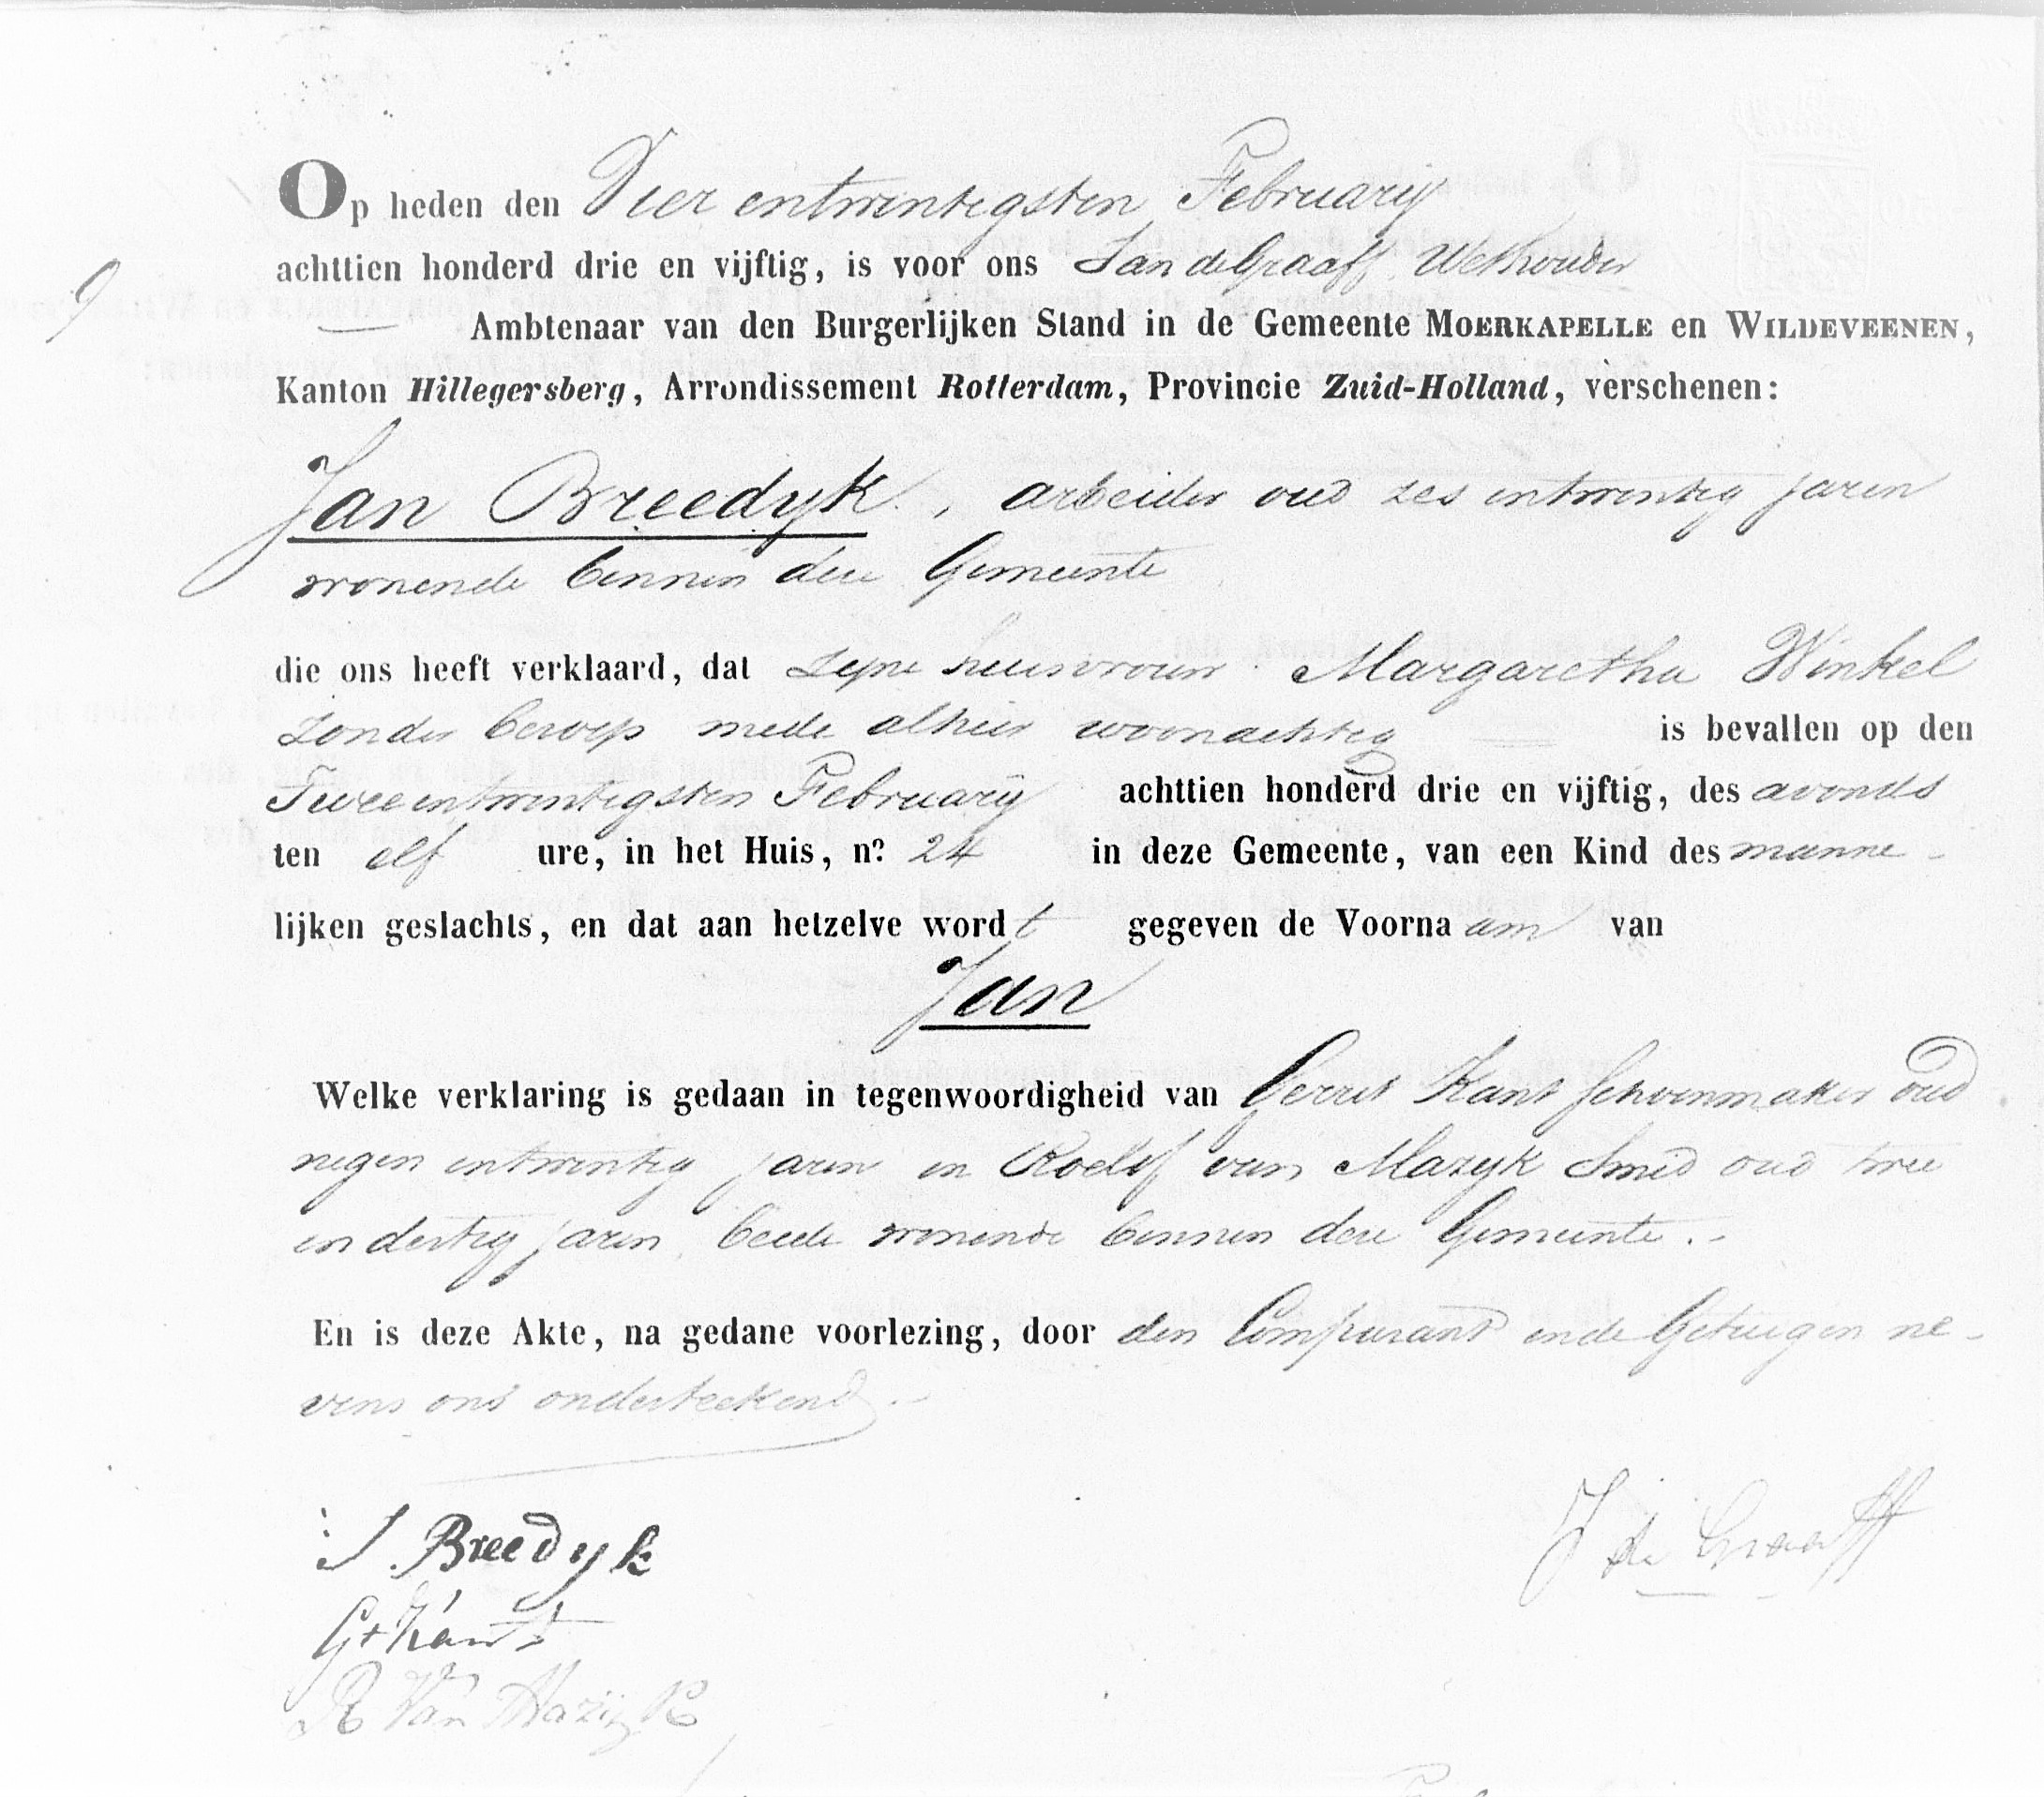 Op heden den Vier entwintigsten Februarij
achttien honderd drie en vijftig, is voor ons Jan de Graaff Wethouder
9
Ambtenaar van den Burgerlijken Stand in de Gemeente MOERKAPELLE en WILDEVEENEN,
Kanton Hillegersberg, Arrondissement Rotterdam, Provincie Zuid-Holland, verschenen:
Jan Breedyk, arbeider oud zes entwintig jaren
wonende binnen deze Gemeente
die ons heeft verklaard, dat zyne huisvrouw Margaretha Winkel
zonder beroep mede alhier woonachtig is bevallen op den
Tweeentwintigsten Februarij achttien honderd drie en vijftig, des avonds
ten elf ure, in het Huis, no. 24 in deze Gemeente, van een Kind des manne-
lijken geslachts, en dat aan hetzelve wordt gegeven de Voornaam van
Jan
Welke verklaring is gedaan in tegenwoordigheid van Gerrit Kant Schoenmaker oud
negen entwintig jaren en Roelof van Mazyk Smid oud twee
en dertig jaren, beide wonende binnen deze Gemeente.-
En is deze Akte, na gedane voorlezing, door den Comparant en de Getuigen ne-
vens ons onderteekend.-
J. Breedyk
J de Graaff
Gt Kant
R Van Mazijk